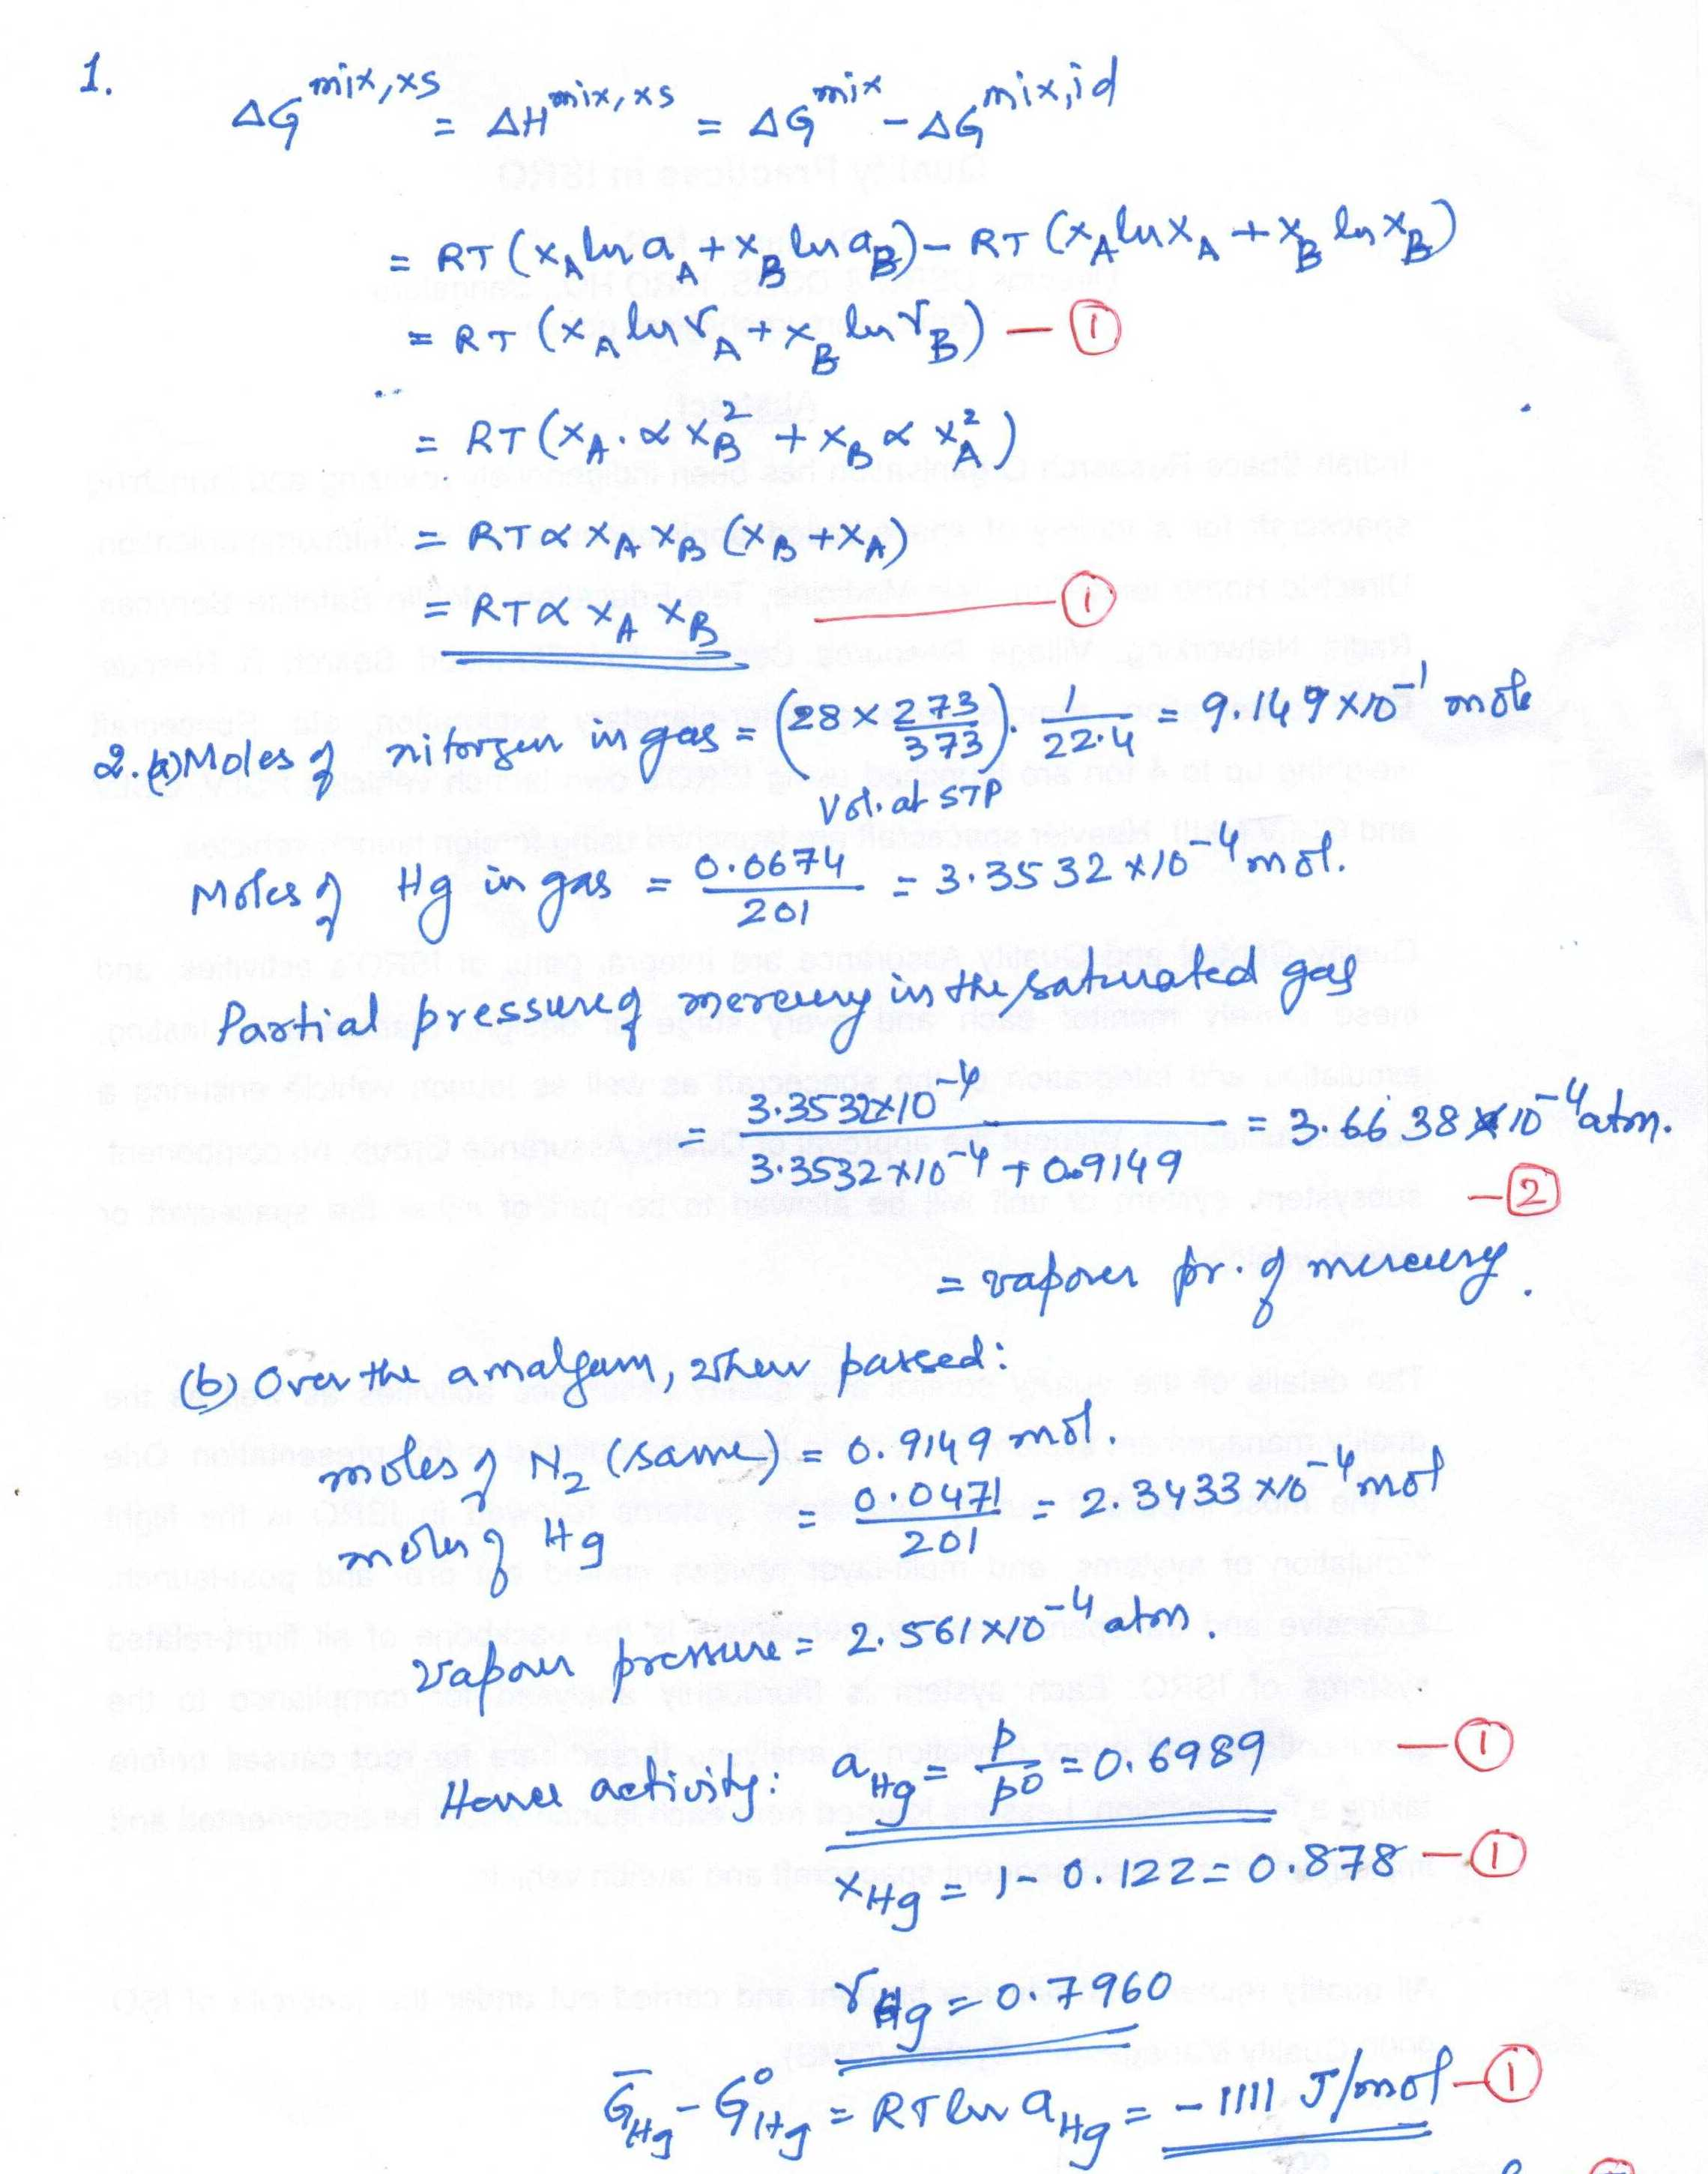 1.
ΔG^{mix,xs} = ΔH^{mix,xs} = ΔG^{mix} - ΔG^{mix,id}
= RT (x_A ln a_A + x_B ln a_B) - RT (x_A ln x_A + x_B ln x_B)
= RT (x_A ln γ_A + x_B ln γ_B) — ①
= RT (x_A . α x_B^2 + x_B α x_A^2)
= RT α x_A x_B (x_B + x_A)
= RT α x_A x_B — ①
2. (a) Moles of nitorgen in gas = (28 × 273/373) . 1/22.4 = 9.149 × 10^{-1} mole
Vol. at STP
Moles of Hg in gas = 0.0674/201 = 3.3532 × 10^{-4} mol.
Partial pressure of mercury in the saturated gas
= 3.3532×10^{-4} / (3.3532×10^{-4} + 0.9149) = 3.6638 × 10^{-4} atm.
— 2
= vapour pr. of mercury.
(b) Over the amalgam, when passed:
moles of N_2 (same) = 0.9149 mol.
moles of Hg = 0.0471/201 = 2.3433 × 10^{-4} mol
vapour pressure = 2.561 × 10^{-4} atm.
Hence activity: a_{Hg} = p/p^0 = 0.6989 — ①
x_{Hg} = 1 - 0.122 = 0.878 — ①
γ_{Hg} = 0.7960
Ḡ_{Hg} - G°_{Hg} = RT ln a_{Hg} = - 1111 J/mol — ①